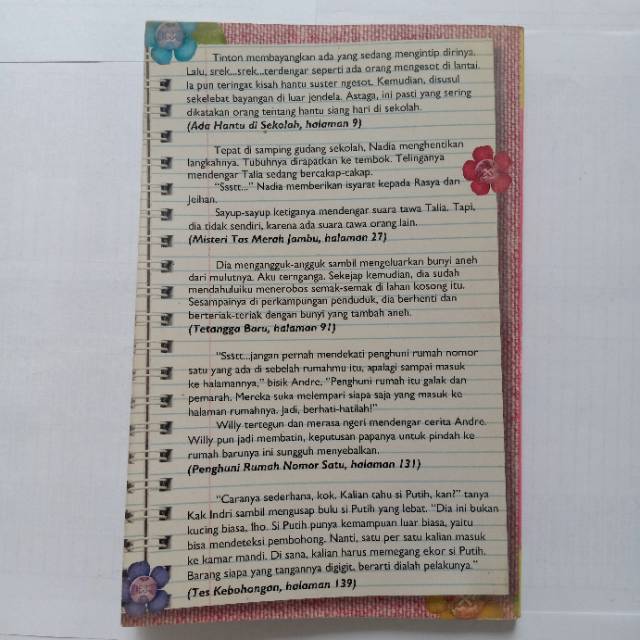 Tinton membayangkan ada yang sedang mengintip dirinya.
Lalu, srek...srek...terdengar seperti ada orang mengesot di lantai.
Ia pun teringat kisah hantu suster ngesot. Kemudian, disusul
sekelebat bayangan di luar jendela. Astaga, ini pasti yang sering
dikatakan orang tentang hantu siang hari di sekolah.
(Ada Hantu di Sekolah, halaman 9)
Tepat di samping gudang sekolah, Nadia menghentikan
langkahnya. Tubuhnya dirapatkan ke tembok. Telinganya
mendengar Talia sedang bercakap-cakap.
"Ssstt..." Nadia memberikan isyarat kepada Rasya dan
Jeihan.
Sayup-sayup ketiganya mendengar suara tawa Talia. Tapi,
dia tidak sendiri, karena ada suara tawa orang lain.
(Misteri Tas Merah Jambu, halaman 27)
Dia mengangguk-angguk sambil mengeluarkan bunyi aneh
dari mulutnya. Aku ternganga. Sekejap kemudian, dia sudah
mendahuluiku menerobos semak-semak di lahan kosong itu.
Sesampainya di perkampungan penduduk, dia berhenti dan
berteriak-teriak dengan bunyi yang tambah aneh.
(Tetangga Baru, halaman 91)
"Ssstt...jangan pernah mendekati penghuni rumah nomor
satu yang ada di sebelah rumahmu itu, apalagi sampai masuk
ke halamannya," bisik Andre. "Penghuni rumah itu galak dan
pemarah. Mereka suka melempari siapa saja yang masuk ke
halaman rumahnya. Jadi, berhati-hatilah!"
Willy tertegun dan merasa ngeri mendengar cerita Andre.
Willy pun jadi membatin, keputusan papanya untuk pindah ke
rumah barunya ini sungguh menyebalkan.
(Penghuni Rumah Nomor Satu, halaman 131)
"Caranya sederhana, kok. Kalian tahu si Putih, kan?" tanya
Kak Indri sambil mengusap bulu si Putih yang lebat. "Dia ini bukan
kucing biasa, lho. Si Putih punya kemampuan luar biasa, yaitu
bisa mendeteksi pembohong. Nanti, satu per satu kalian masuk
ke kamar mandi. Di sana, kalian harus memegang ekor si Putih.
Barang siapa yang tangannya digigit, berarti dialah pelakunya."
(Tes Kebohongan, halaman 139)